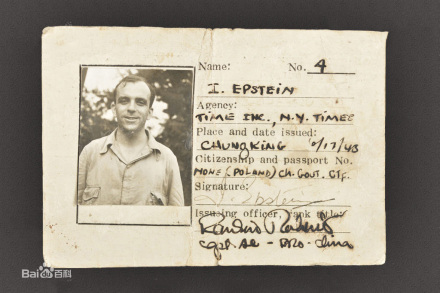 Name: No. 4
I. EPSTEIN
Agency:
TIME INC., N.Y. TIMES
Place and date issued:
CHUNGKING /17/43
Citizenship and passport No.
NONE (POLAND) CH. GOUT. CTF.
Signature:
I. Epstein
Issuing officer, rank title:
Capt. AC - PRO - China
Bai百科